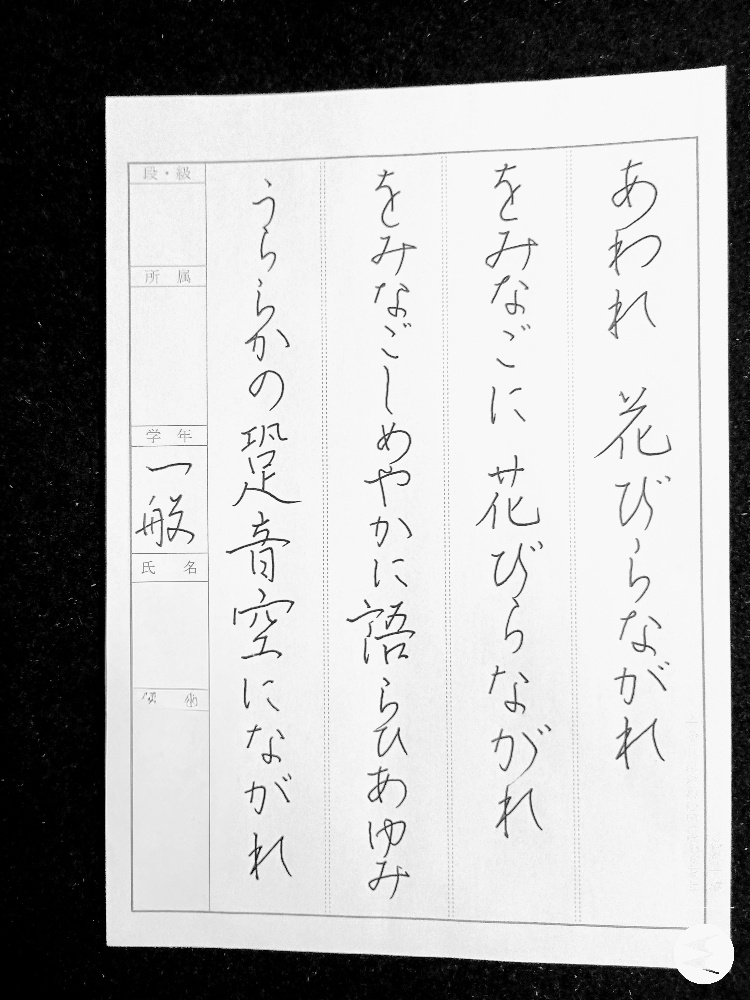 あわれ　花びらながれ
をみなごに　花びらながれ
をみなごしめやかに語らひあゆみ
うららかの跫音空にながれ
段・級
所属
学年
一般
氏名